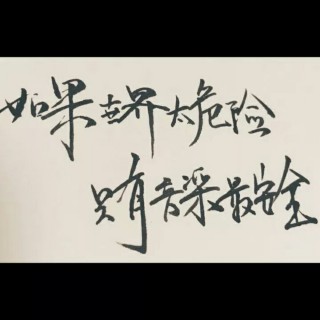 如果世界太危险
只有音樂最安全